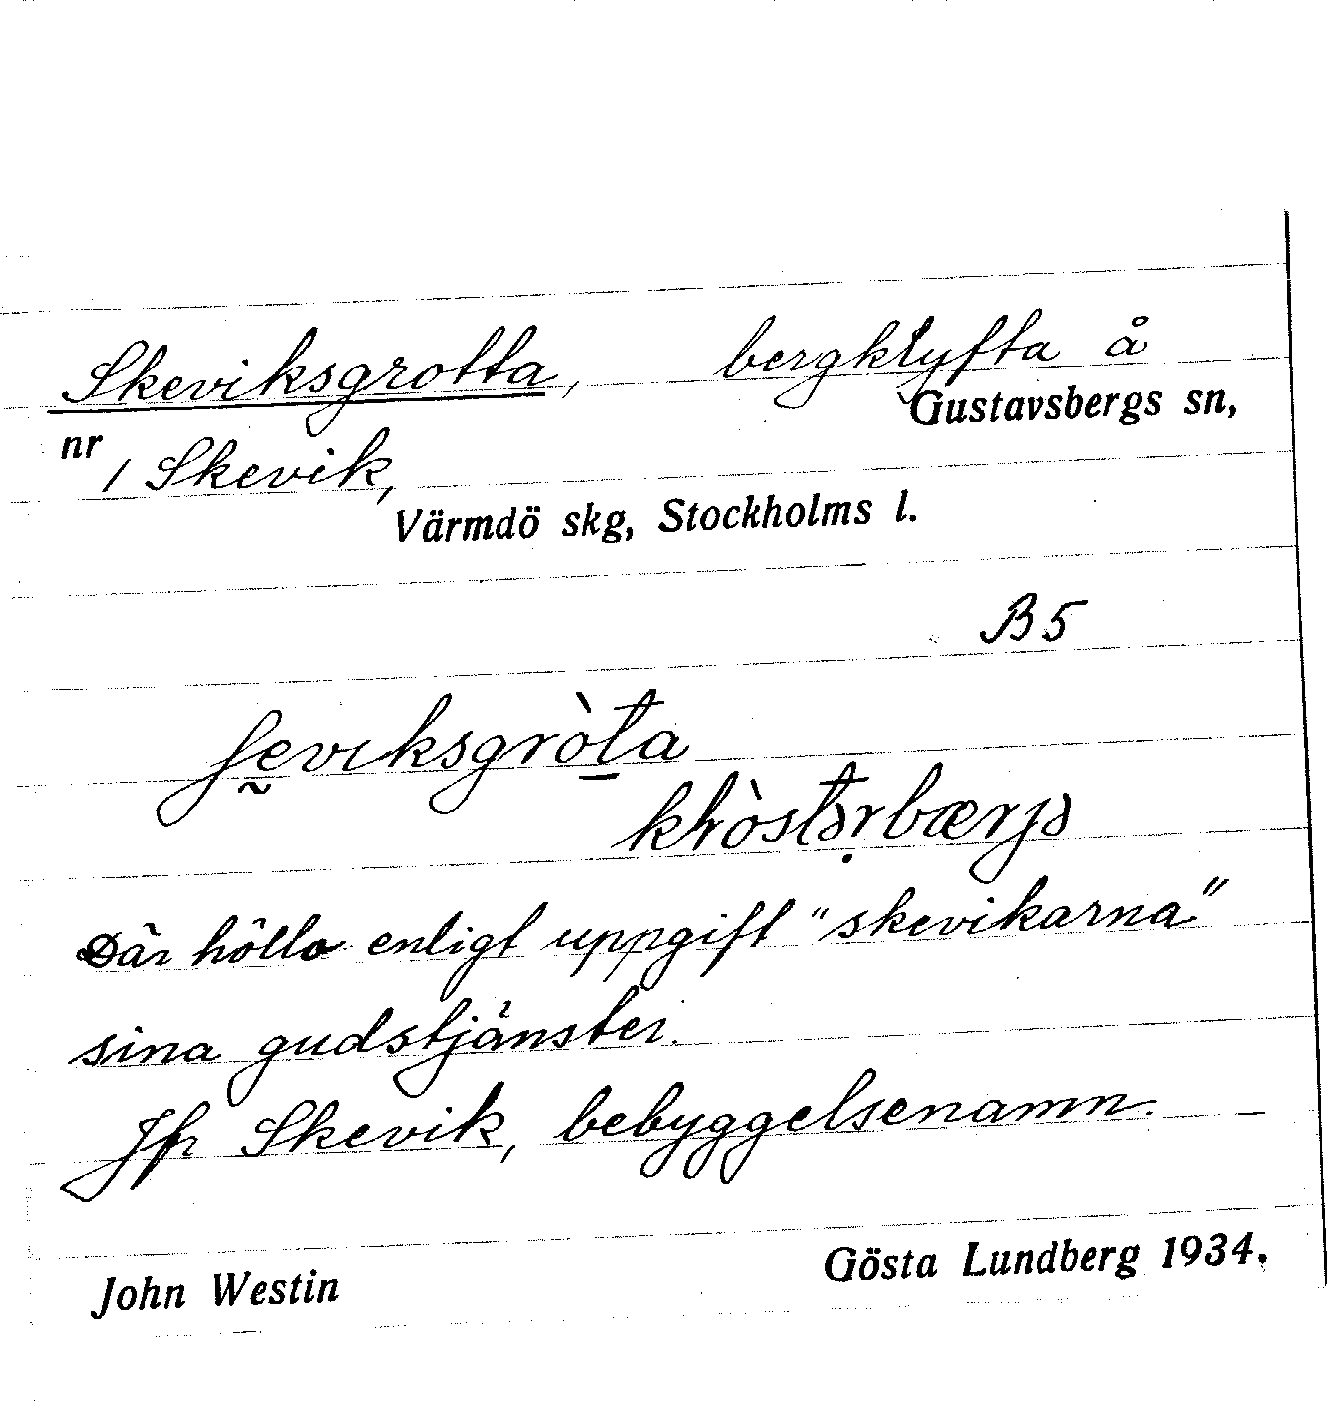 Skeviksgrotta, bergklyfta å
Gustavsbergs sn,
nr 1 Skevik,
Värmdö skg, Stockholms l.
B5
ʃeviksgròta
Där höllo enligt uppgift "skevikarna"
sina gudstjänster.
Jfr Skevik, bebyggelsenamn.
John Westin Gösta Lundberg 1934.